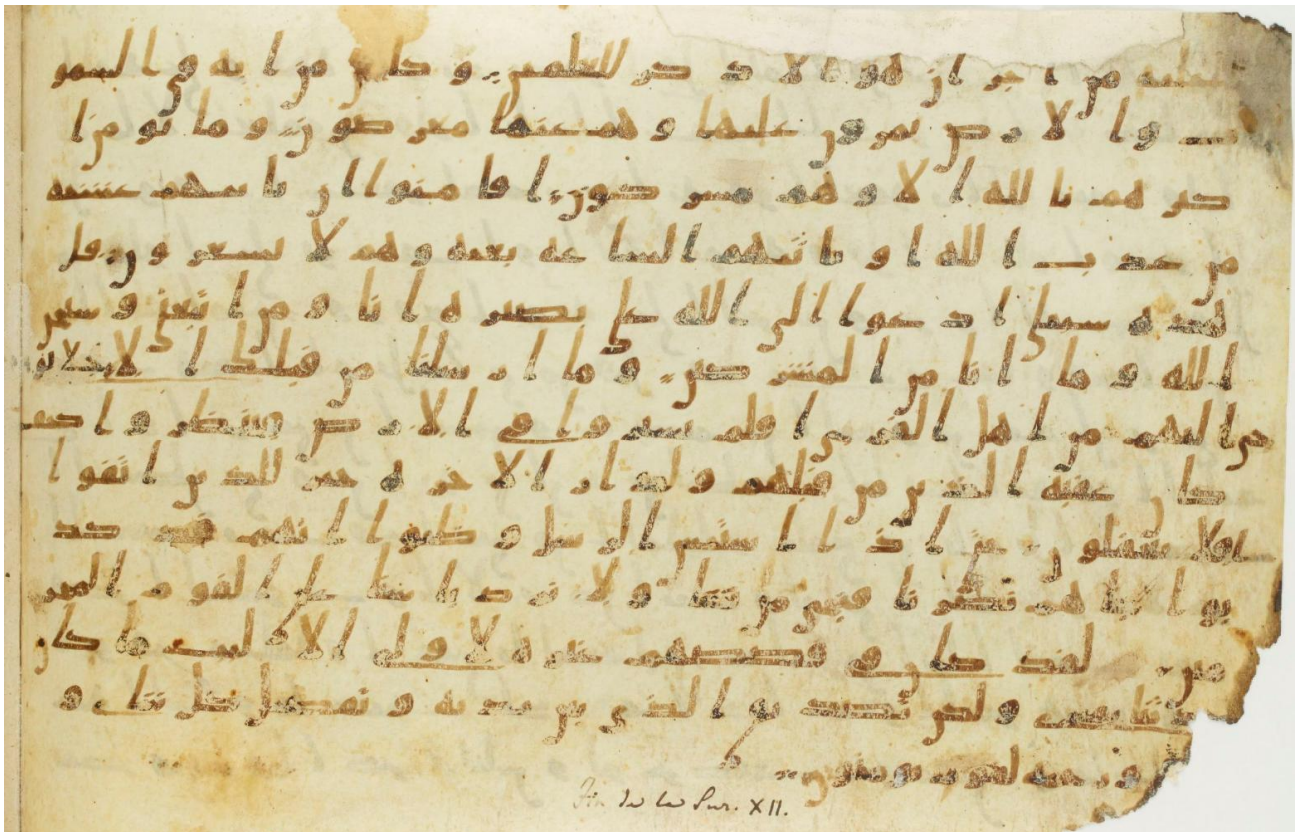 عليه من اجر ان هو الا ذكر للعلمين وكاين من ايه في السمو
ت والارض يمرون عليها وهم عنها معرضون وما يومن ا
كثرهم بالله الا وهم مشركون افامنوا ان تاتيهم غشيه
من عذب الله او تاتيهم الساعه بغته وهم لا يشعرون قل
هذه سبيلي ادعوا الى الله على بصيره انا ومن اتبعني وسبحن
الله وما انا من المشركين وما ارسلنا من قبلك الا رجلا نو
حي اليهم من اهل القرى افلم يسيروا في الارض فينظروا كيف
كان عقبه الذين من قبلهم ولدار الاخره خير للذين اتقوا
افلا تعقلون حتى اذا استيس الرسل وظنوا انهم قد كذ
بوا جاهم نصرنا فنجي من نشا ولا يرد باسنا عن القوم المجر
مين لقد كان في قصصهم عبره لاولي الالبب ما كان
حديثا يفترى ولكن تصديق الذي بين يديه وتفصيل كل شي و
ورحمه لقوم يومنون
Fin de la Sur. XII.